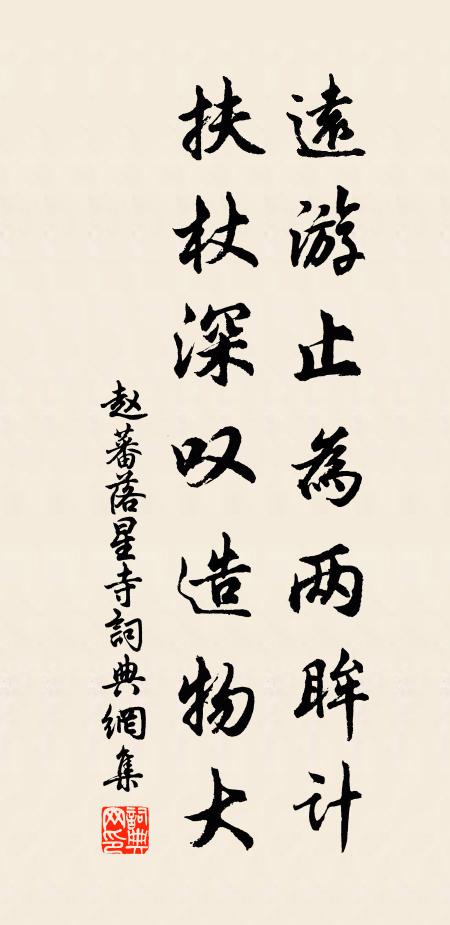 遠游止為两眸計
扶杖深叹造物大
赵蕃落星寺詞典網集
詞典网印